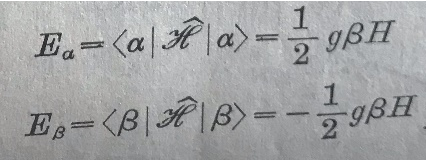 E_α = ⟨α| ℋ̂ |α⟩ = 1/2 gβH
E_β = ⟨β| ℋ̂ |β⟩ = − 1/2 gβH